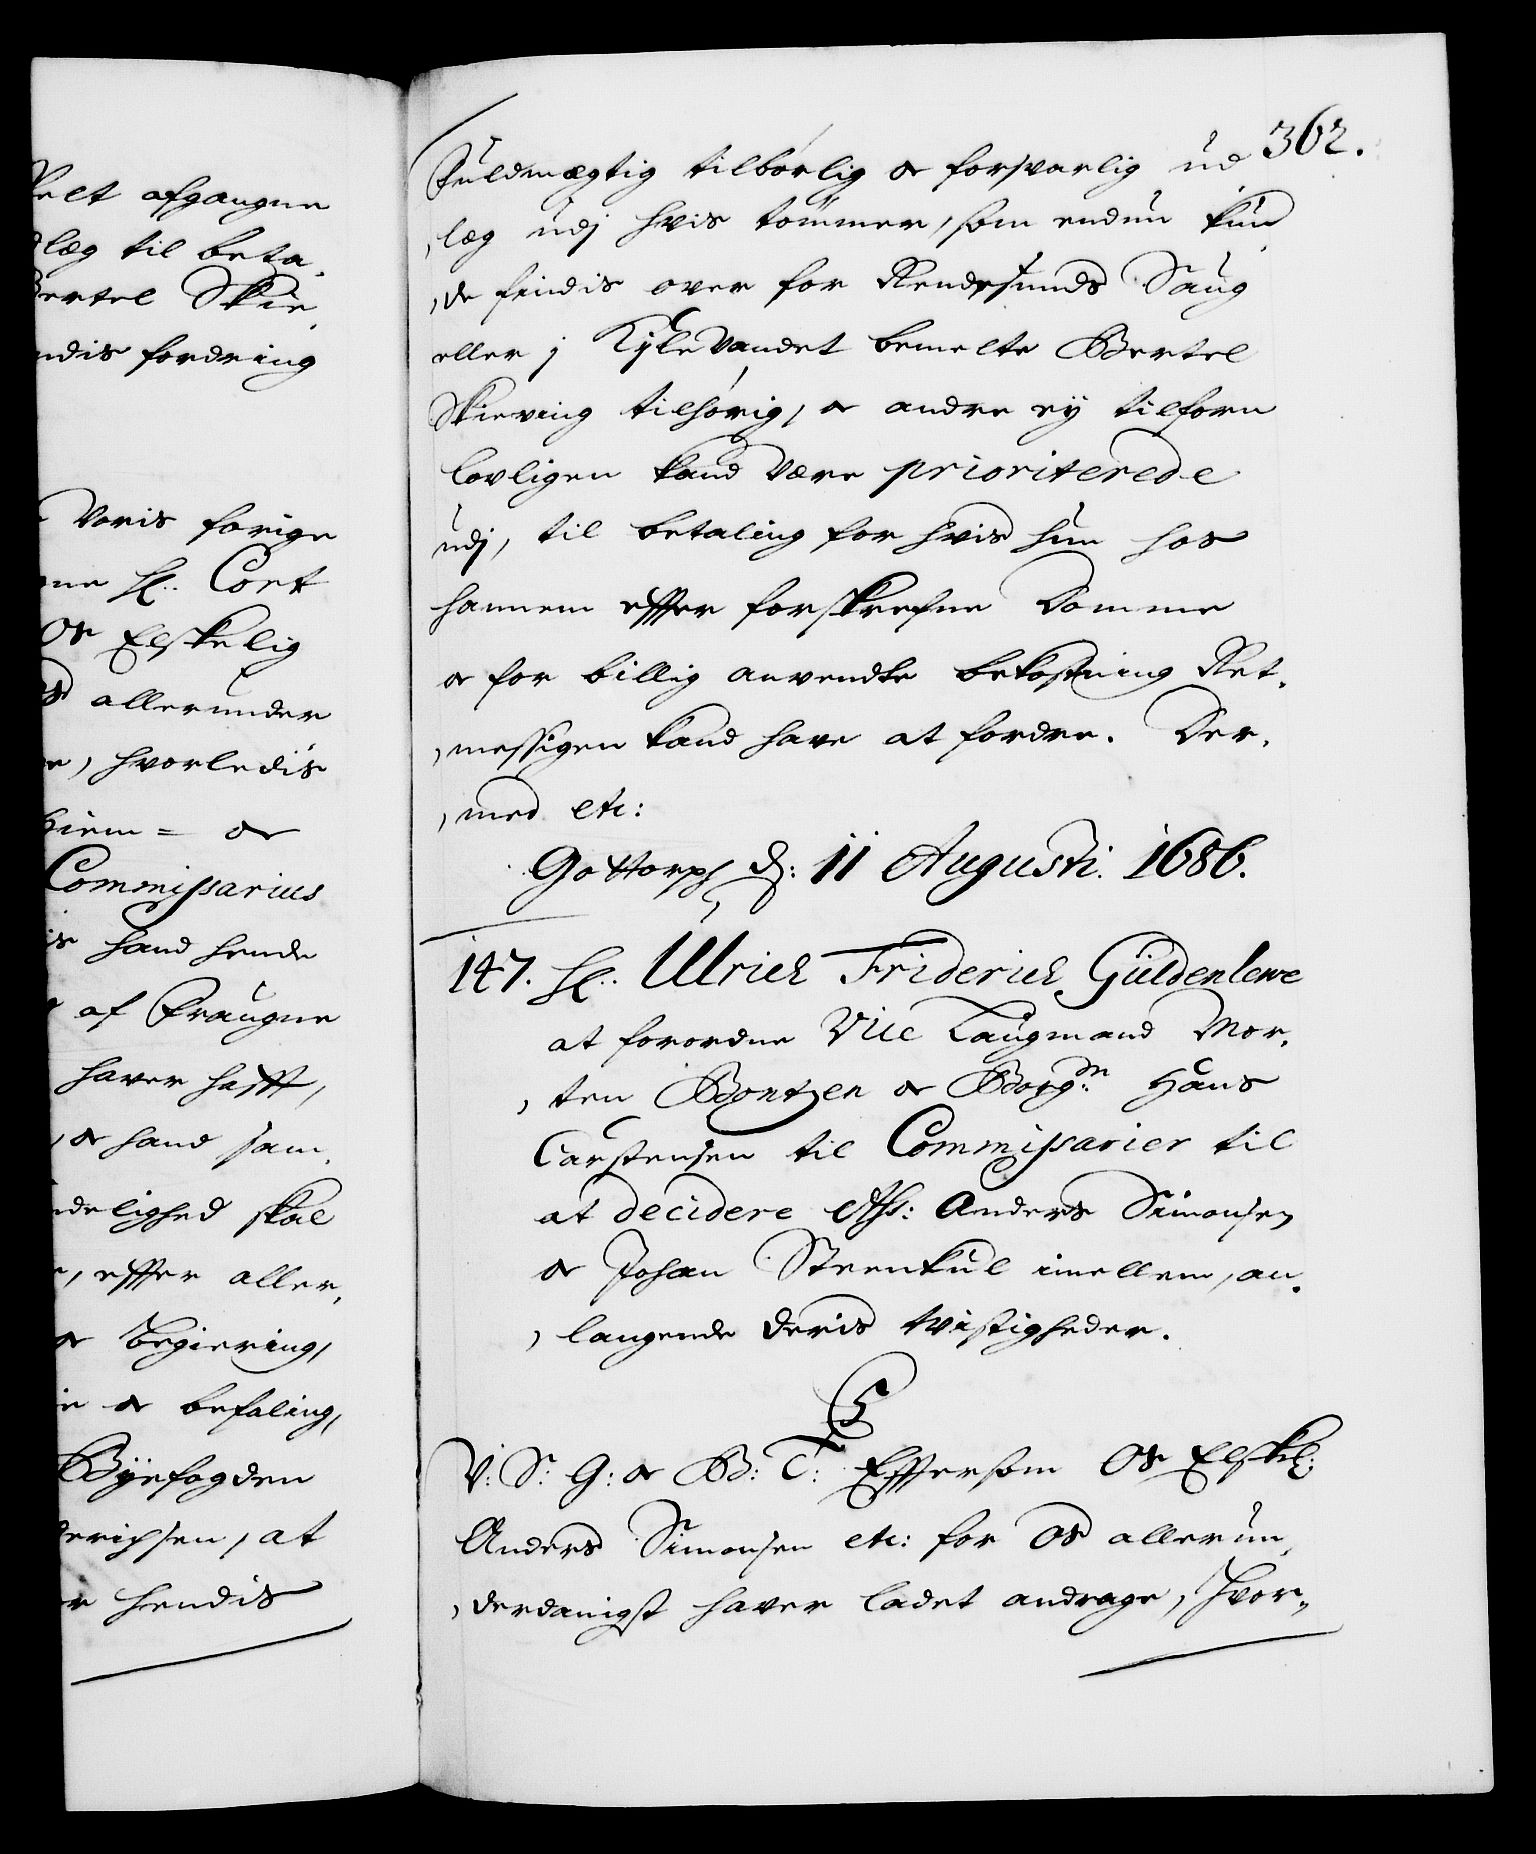 elt afgangne
læg til beta,
ertel Skie,
ndis fordring
Voris forige
ne H.. Cort
Os Elskelig
allerunder
e, hvorledis
hiem= oc
Commissarius
is hand hende
af Fraugne
haver hafft,
, oc hand sam,
delighed skal
, effter aller,
oc begiering,
oc befaling,
Byefogden
erichsen, at
hendis
362.
Fuldmægtig tilbørlig oc forsvarlig ud
,læg udj hvis tømmer, som endnu kun
,de findis over for Rendesunds Saug
eller j Kyle Vandet bemelte Bertel
Skieving tilhørig, oc andre ey tilforn
lovligen kand være prioriterede
udj, til betaling for hvis hun hos
hannem effter forskrefne Domme
oc for billig anvendte bekostning Ret,
,messigen kand have at fordre. Der,
,med etc:
Gottorph d: 11 Augusti. 1686.
147. H.. Ulrich Friderich Güldenlewe
at forordne Vice Laugmand Mor,
,ten Bentzen oc Borg:m Hans
Carstensen til Commissarier til
at decidere Ass: Anders Simonsen
oc Johan Steenkul imellem, an,
,langende deris tvistigheder.
C5
V: S: G: oc B: T: Effter som Os Elskl:
Anders Simonsen etc: for Os allerun,
,derdanigst haver ladet andrage, hvor,,